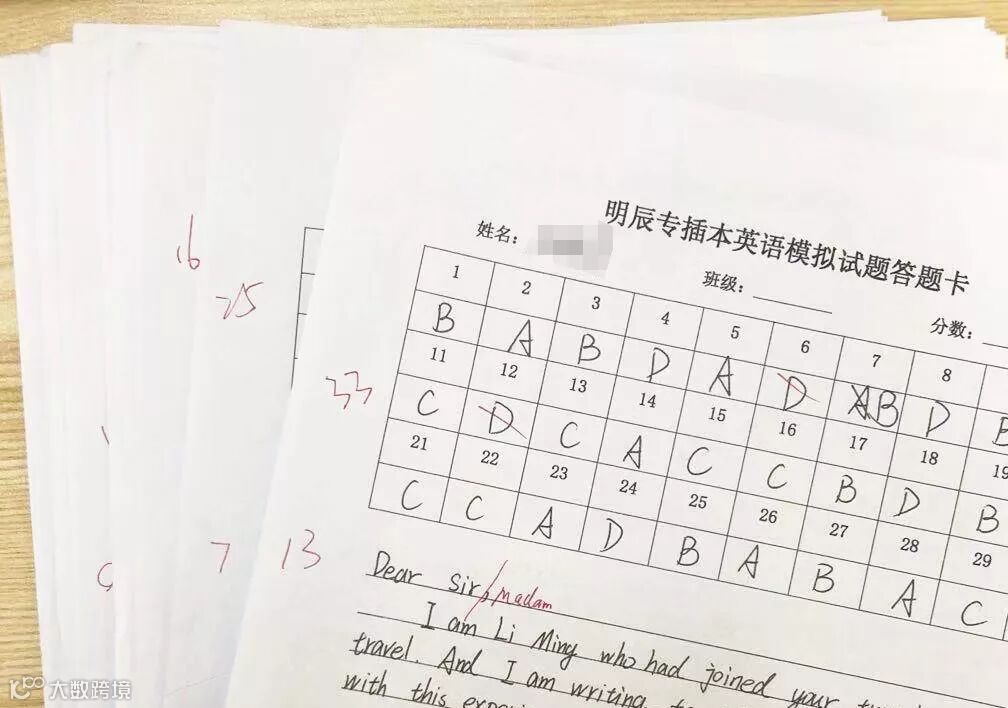 明辰专插本英语模拟试题答题卡
姓名： 班级： 分数：
1 2 3 4 5 6 7 8
B A B D A D AB D
11 12 13 14 15 16 17 18 19
C D C A C C B D B
21 22 23 24 25 26 27 28 29
C C A D B A B A C
16
25
33
7
13
Dear Sir, / Madam
I am Li Ming who had joined your
travel. And I am writing
with this
大数跨境